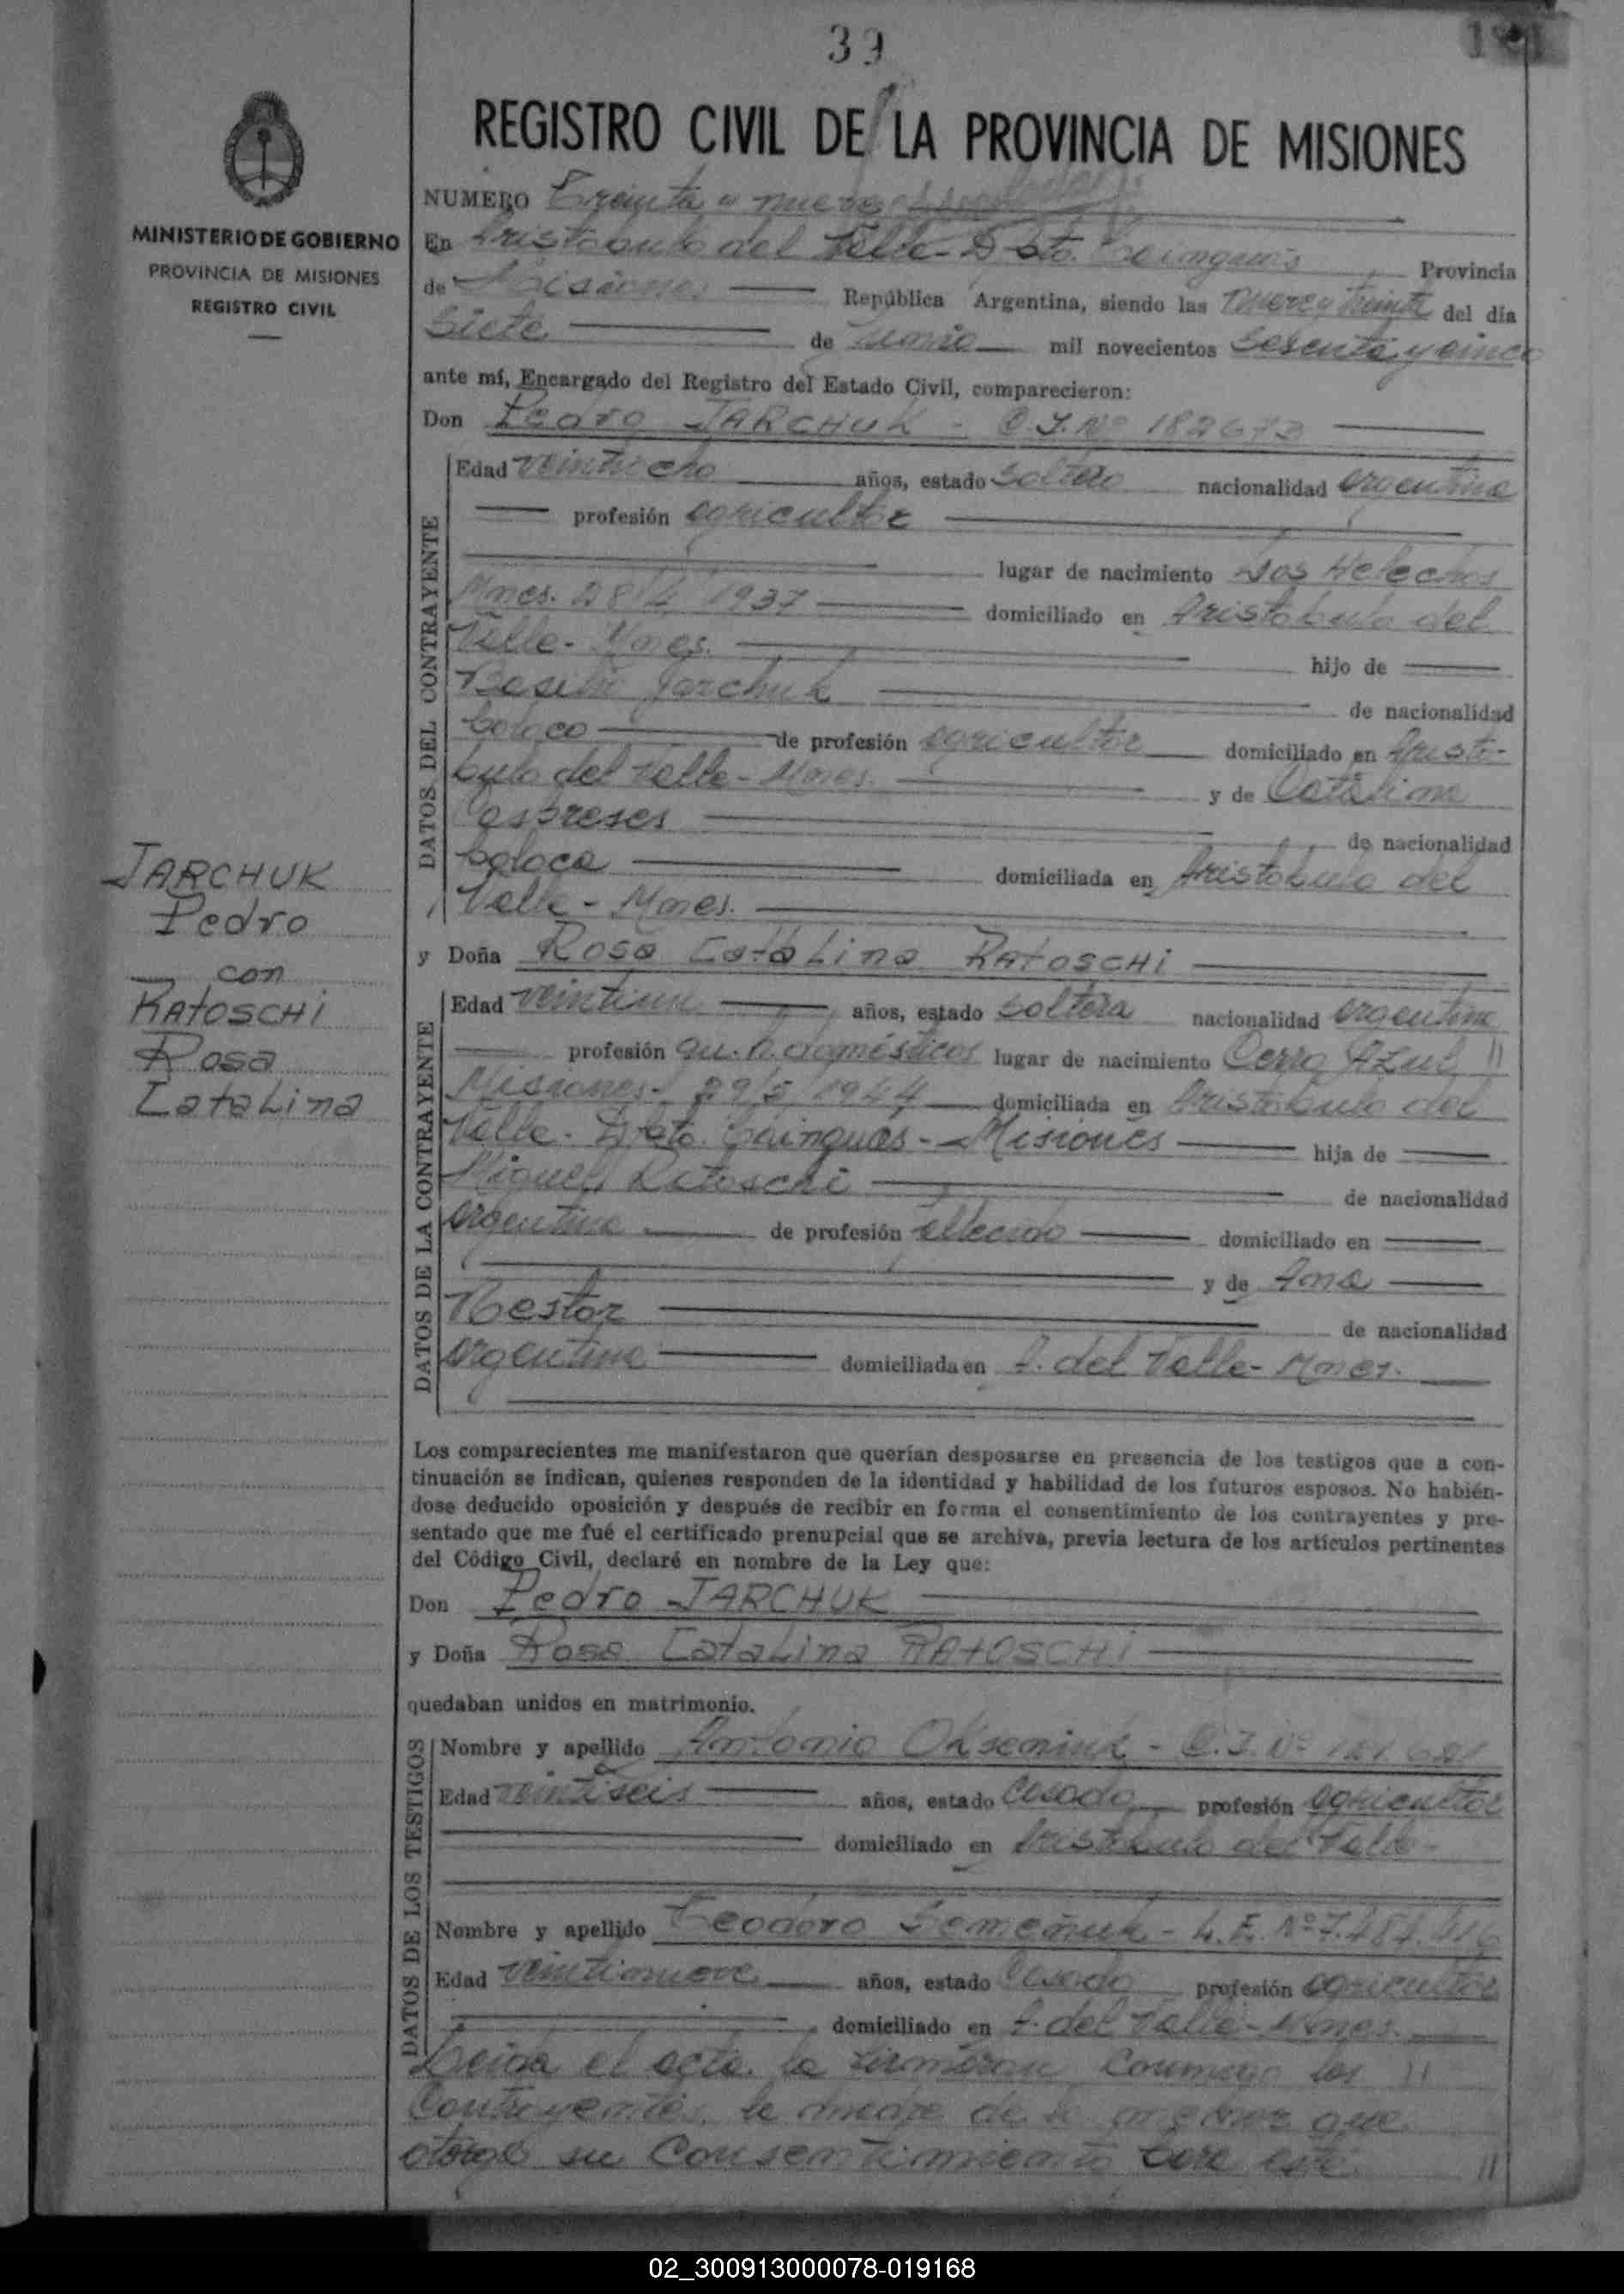 39
REGISTRO CIVIL DE LA PROVINCIA DE MISIONES
MINISTERIO DE GOBIERNO
PROVINCIA DE MISIONES
REGISTRO CIVIL
NUMERO Treinta y nueve
En Aristobulo del Valle - Dpto. Cainguás Provincia
de Misiones República Argentina, siendo las nueve y treinta del día
Siete de Junio mil novecientos sesenta y cinco
ante mí, Encargado del Registro del Estado Civil, comparecieron:
Don Pedro JARCHUK - C.I. Nº 182673
DATOS DEL CONTRAYENTE
Edad veintiocho años, estado soltero nacionalidad argentina
profesión agricultor
lugar de nacimiento Los Helechos
Mnes. 28/4/1937 domiciliado en Aristobulo del
Valle - Mnes. hijo de
Basilio Jarchuk de nacionalidad
polaco de profesión agricultor domiciliado en Aristo-
bulo del Valle - Mnes. y de Catalina
de nacionalidad
polaca domiciliada en Aristobulo del
Valle - Mnes.
JARCHUK
Pedro
con
RATOSCHI
Rosa
Catalina
y Doña Rosa Catalina RATOSCHI
DATOS DE LA CONTRAYENTE
Edad veintiun años, estado soltera nacionalidad argentina
profesión qu. h. domésticos lugar de nacimiento Cerro Azul //
Misiones - 29/5/1944 domiciliada en Aristobulo del
Valle - Dpto. Cainguás - Misiones hija de
Miguel Ratoschi de nacionalidad
argentina de profesión fallecido domiciliado en
y de Ana
Nestor de nacionalidad
argentina domiciliada en A. del Valle - Mnes.
Los comparecientes me manifestaron que querían desposarse en presencia de los testigos que a con-
tinuación se indican, quienes responden de la identidad y habilidad de los futuros esposos. No habién-
dose deducido oposición y después de recibir en forma el consentimiento de los contrayentes y pre-
sentado que me fué el certificado prenupcial que se archiva, previa lectura de los artículos pertinentes
del Código Civil, declaré en nombre de la Ley que:
Don Pedro JARCHUK
y Doña Rosa Catalina RATOSCHI
quedaban unidos en matrimonio.
DATOS DE LOS TESTIGOS
Nombre y apellido Antonio Okseniuk - C.I. Nº
Edad veintiseis años, estado Casado profesión agricultor
domiciliado en Aristobulo del Valle -
Nombre y apellido Teodoro Semeñuk - L.E. Nº 7.484.416
Edad veintinueve años, estado Casado profesión agricultor
domiciliado en A. del Valle - Mnes.
Leida el acta la firmaran conmigo los //
Contrayentes, la madre de la menor que
otorgó su Consentimiento para este //
02_300913000078-019168